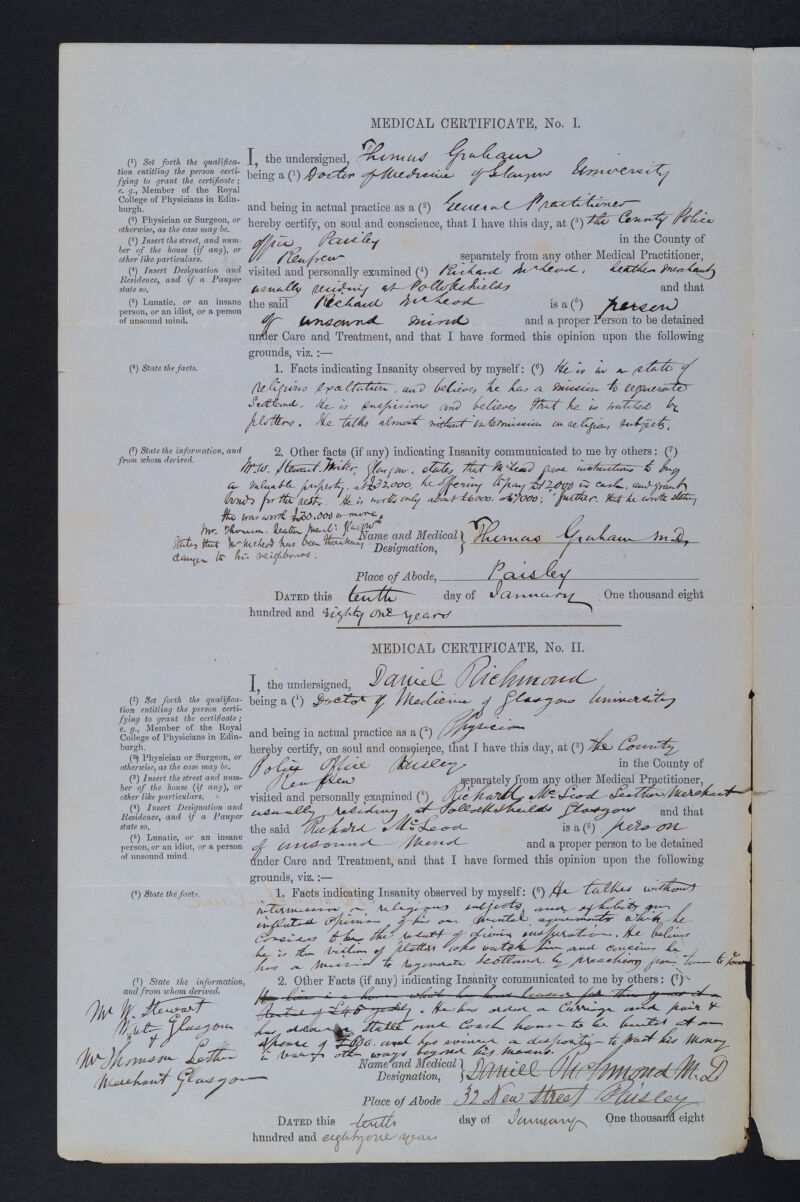 MEDICAL CERTIFICATE, No. I.
(1) Set forth the qualifica-
tion entitling the person certi-
fying to grant the certificate;
e. g., Member of the Royal
College of Physicians in Edin-
burgh.
(2) Physician or Surgeon, or
otherwise, as the case may be.
(3) Insert the street, and num-
ber of the house (if any), or
other like particulars.
(4) Insert Designation and
Residence, and if a Pauper
state so.
(5) Lunatic, or an insane
person, or an idiot, or a person
of unsound mind.
I, the undersigned, Thomas Graham
being a (1) Doctor of Medicine of Glasgow University
and being in actual practice as a (2) General Practitioner
hereby certify, on soul and conscience, that I have this day, at (3) the County Police
office Paisley in the County of
Renfrew separately from any other Medical Practitioner,
visited and personally examined (4) Richard McLeod. Leather Merchant
usually residing at Pollokshields and that
the said Richard McLeod is a (5) person
of unsound mind and a proper Person to be detained
under Care and Treatment, and that I have formed this opinion upon the following
grounds, viz. :—
(6) State the facts.
1. Facts indicating Insanity observed by myself: (6) He is in a state of
religious exaltation, and believes he has a mission to regenerate
Scotland. He is suspicious and believes that he is watched by
plotters. He talks almost without intermission on religious subjects.
(7) State the information, and
from whom derived.
2. Other facts (if any) indicating Insanity communicated to me by others: (7)
Mr W. Stewart. Writer, Glasgow. states that McLeod gave instructions to buy
a valuable property, at £32,000. he offering to pay £12,000 in cash, and grant
bonds for the rest. He is worth only about £6000. or £7000; further that he wrote stating
that he was worth £30.000 or more.
Mr. Thomson. Leather Mercht. Glasgow
states that Mr McLeod has been threatening
danger to his neighbours.
Name and Medical
Designation, } Thomas Graham M.D.
Place of Abode, Paisley
DATED this tenth day of January One thousand eight
hundred and eighty one years
MEDICAL CERTIFICATE, No. II.
(1) Set forth the qualifica-
tion entitling the person certi-
fying to grant the certificate;
e. g., Member of the Royal
College of Physicians in Edin-
burgh.
(2) Physician or Surgeon, or
otherwise, as the case may be.
(3) Insert the street and num-
ber of the house (if any), or
other like particulars.
(4) Insert Designation and
Residence, and if a Pauper
state so.
(5) Lunatic, or an insane
person, or an idiot, or a person
of unsound mind
I, the undersigned, Daniel Richmond
being a (1) Doctor of Medicine of Glasgow University
and being in actual practice as a (2) Physician
hereby certify, on soul and conscience, that I have this day, at (3) the County
Police Office Paisley in the County of
Renfrew separately from any other Medical Practitioner,
visited and personally examined (4) Richard McLeod Leather Merchant
usually residing at Pollockshields Glasgow and that
the said Richard McLeod is a (5) person
of unsound mind and a proper person to be detained
under Care and Treatment, and that I have formed this opinion upon the following
grounds, viz. :—
(6) State the facts.
1. Facts indicating Insanity observed by myself: (6) He talks without
intermission on religious subjects, and exhibits an
inflated opinion of his own mental agreements which he
considers to be the result of divine inspiration. He believes
he is the victim of plotters who watch him and conceives he
has a mission to regenerate Scotland by preaching from town to town
(7) State the information,
and from whom derived.
Mr W. Stewart
Writer Glasgow
&
Mr Thomson Leather
Merchant Glasgow
2. Other Facts (if any) indicating Insanity communicated to me by others: (7)
rental of £45 yearly. He has ordered a Carriage and pair &
has ordered stable and Coach house to be built at an
expense of and has evinced a disposition to waste his money
in various other ways beyond his means.
Name and Medical
Designation, } Daniel Richmond M.D.
Place of Abode 32 New Street Paisley
DATED this tenth day of January One thousand eight
hundred and eighty one years